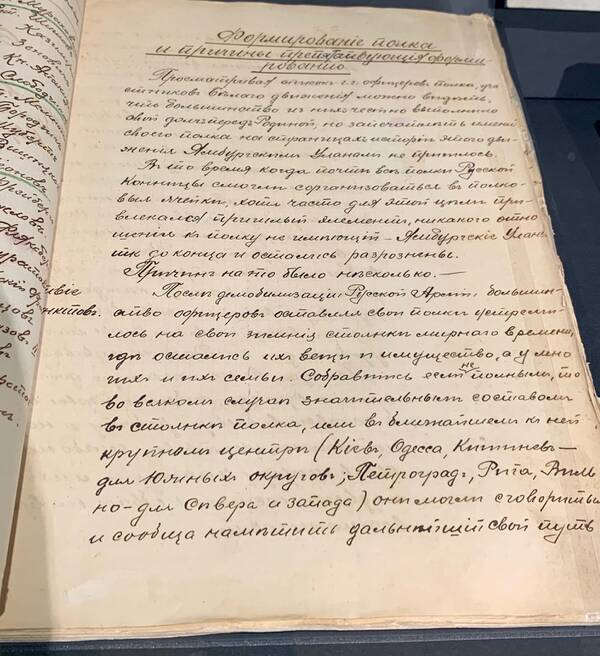 Формированіе полка
и причины препятствующія форми
рованію.
Просматривая список г.г. офицеров полка, уча
стников Бѣлаго движенія можно видѣть,
что большинство из них честно выполнило
свой долг перед Родиной, но запечатлѣть имени
своего полка на страницах исторіи этого дви-
женія Ямбургским Уланам не пришлось.
В то время когда почти всѣ полки Русской
Конницы смогли сорганизоваться в полко-
выя ячейки, хотя часто для этой цѣли при
влекался пришлый элемент, никакого отно
шенія к полку не имѣющій – Ямбургскіе Улан
до конца и остались разрознены.
Причин на то было нѣсколько.—
Послѣ демобилизаціи Русской Арміи большин-
ство офицеров оставляя свои полки устреми-
лось на свои зимнія стоянки мирнаго времени,
гдѣ остались их вещи и имущество, а у мно
гих и их семьи. Собравшись если не полным, то
во всяком случаѣ значительным составом
в стоянкѣ полка, или в ближайшем к ней
крупном центрѣ (Кіевъ, Одесса, Кишиневъ —
для Южных округов; Петроградъ, Рига, Виль
но – для Сѣвера и запада) они могли сговориться
и сообща намѣтить дальнѣйшій свой путь